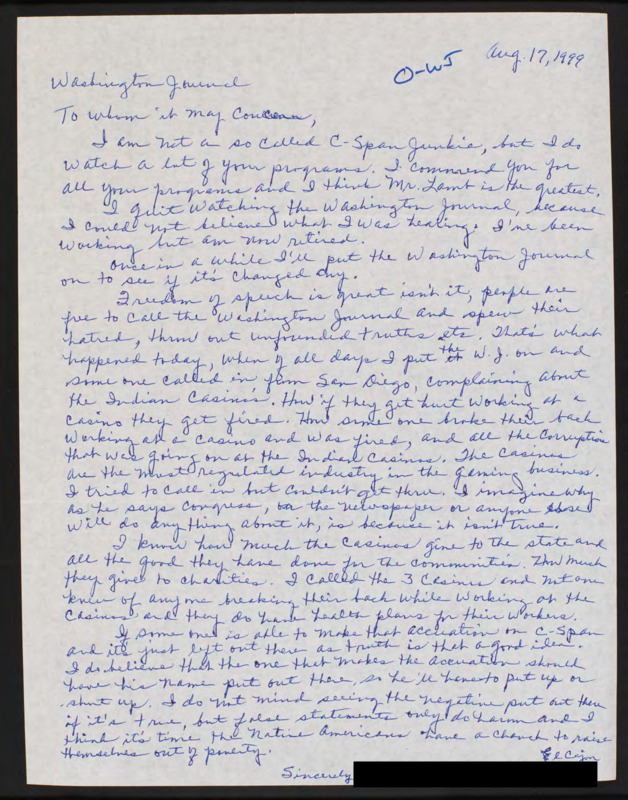 Aug. 17, 1999
O-WJ
Washington Journal
To whom it may concern,
I am not a so called C-Span Junkie, but I do
watch a lot of your programs. I commend you for
all your programs and I think Mr. Lamb is the greatest.
I quit watching the Washington Journal, because
I could not believe what I was hearing. I've been
working but am now retired.
Once in a while I'll put the Washington Journal
on to see if it's changed any.
Freedom of speech is great isn't it, people are
free to call the Washington Journal and spew their
hatred, throw out unfounded truths etc. That's what
happened today, when of all days I put the W.J. on and
some one called in from San Diego, complaining about
the Indian Casinos. How if they get hurt working at a
casino they get fired. How some one broke their back
working at a casino and was fired, and all the corruption
that was going on at the Indian Casinos. The Casinos
are the most regulated industry in the gaming business.
I tried to call in but couldn't get thru. I imagine why
as he says Congress, or the newspaper or anyone else
will do any thing about it, is because it isn't true.
I know how much the Casinos give to the state and
all the good they have done for the communities. How much
they give to charities. I called the 3 Casinos and not one
knew of anyone breaking their back while working at the
Casinos and they do have health plans for their workers.
If some one is able to make that accusation on C-Span
and it's just left out there as truth is that a good idea.
I do believe that the one that makes the accusation should
have his name put out there, so he'll have to put up or
shut up. I do not mind seeing the negative put out there
if it's true, but false statements only do harm and I
think it's time the Native Americans have a chance to raise
themselves out of poverty.
El Cajon
Sincerely